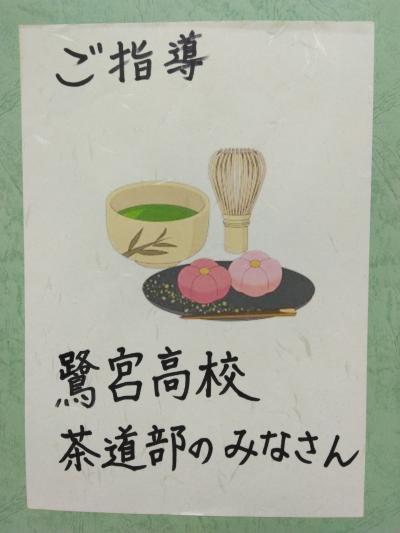 ご指導
鷺宮高校
茶道部のみなさん